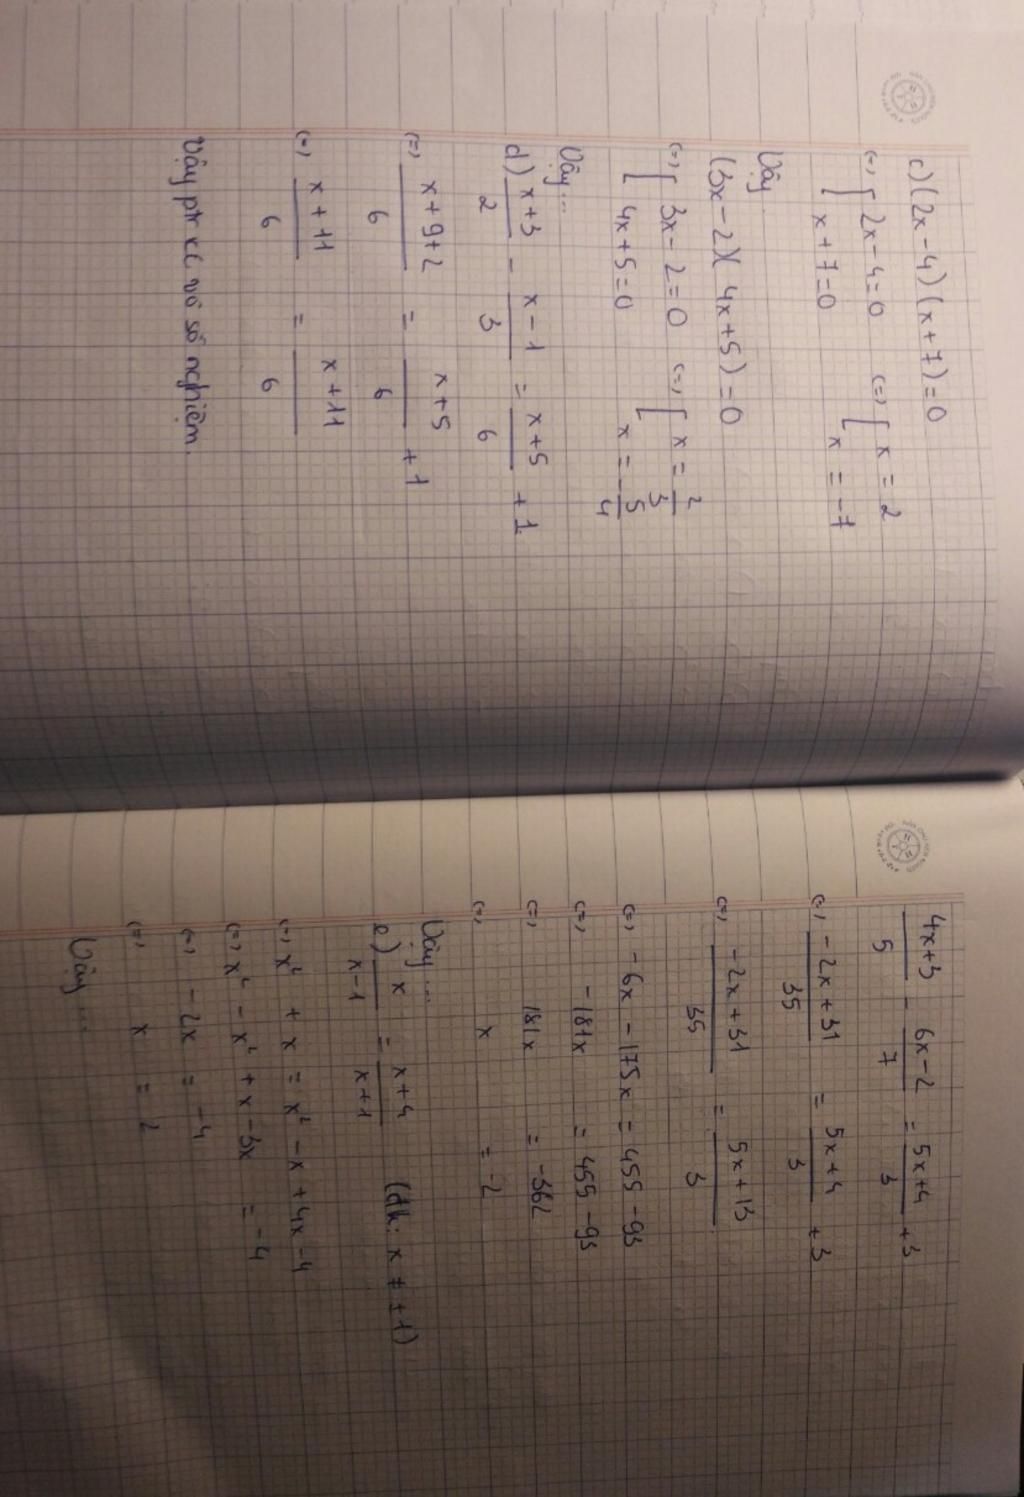 c) (2x-4)(x+7)=0
(=) [ 2x-4=0 (=) [ x = 2
[ x+7=0 [ x = -7
Vậy
(3x-2)(4x+5)=0
(=) [ 3x-2=0 (=) [ x = 2/3
[ 4x+5=0 [ x = -5/4
Vậy...
d) x+3/2 - x-1/3 = x+5/6 + 1
(=) x+9+2/6 = x+5/6 + 1
(=) x+11/6 = x+11/6
Vậy ptr có vô số nghiệm.
4x+3/5 - 6x-2/7 = 5x+4/3 + 3
(=) -2x+31/35 = 5x+4/3 + 3
(=) -2x+31/35 = 5x+13/3
(=) -6x - 175x = 455 - 93
(=) -181x = 455 - 93
(=) 181x = -362
(=) x = -2
Vậy...
e) x/x-1 = x+4/x+1 (đk: x ≠ ±1)
(=) x² + x = x² - x + 4x - 4
(=) x² - x² + x - 3x = -4
(=) -2x = -4
(=) x = 2
Vậy...